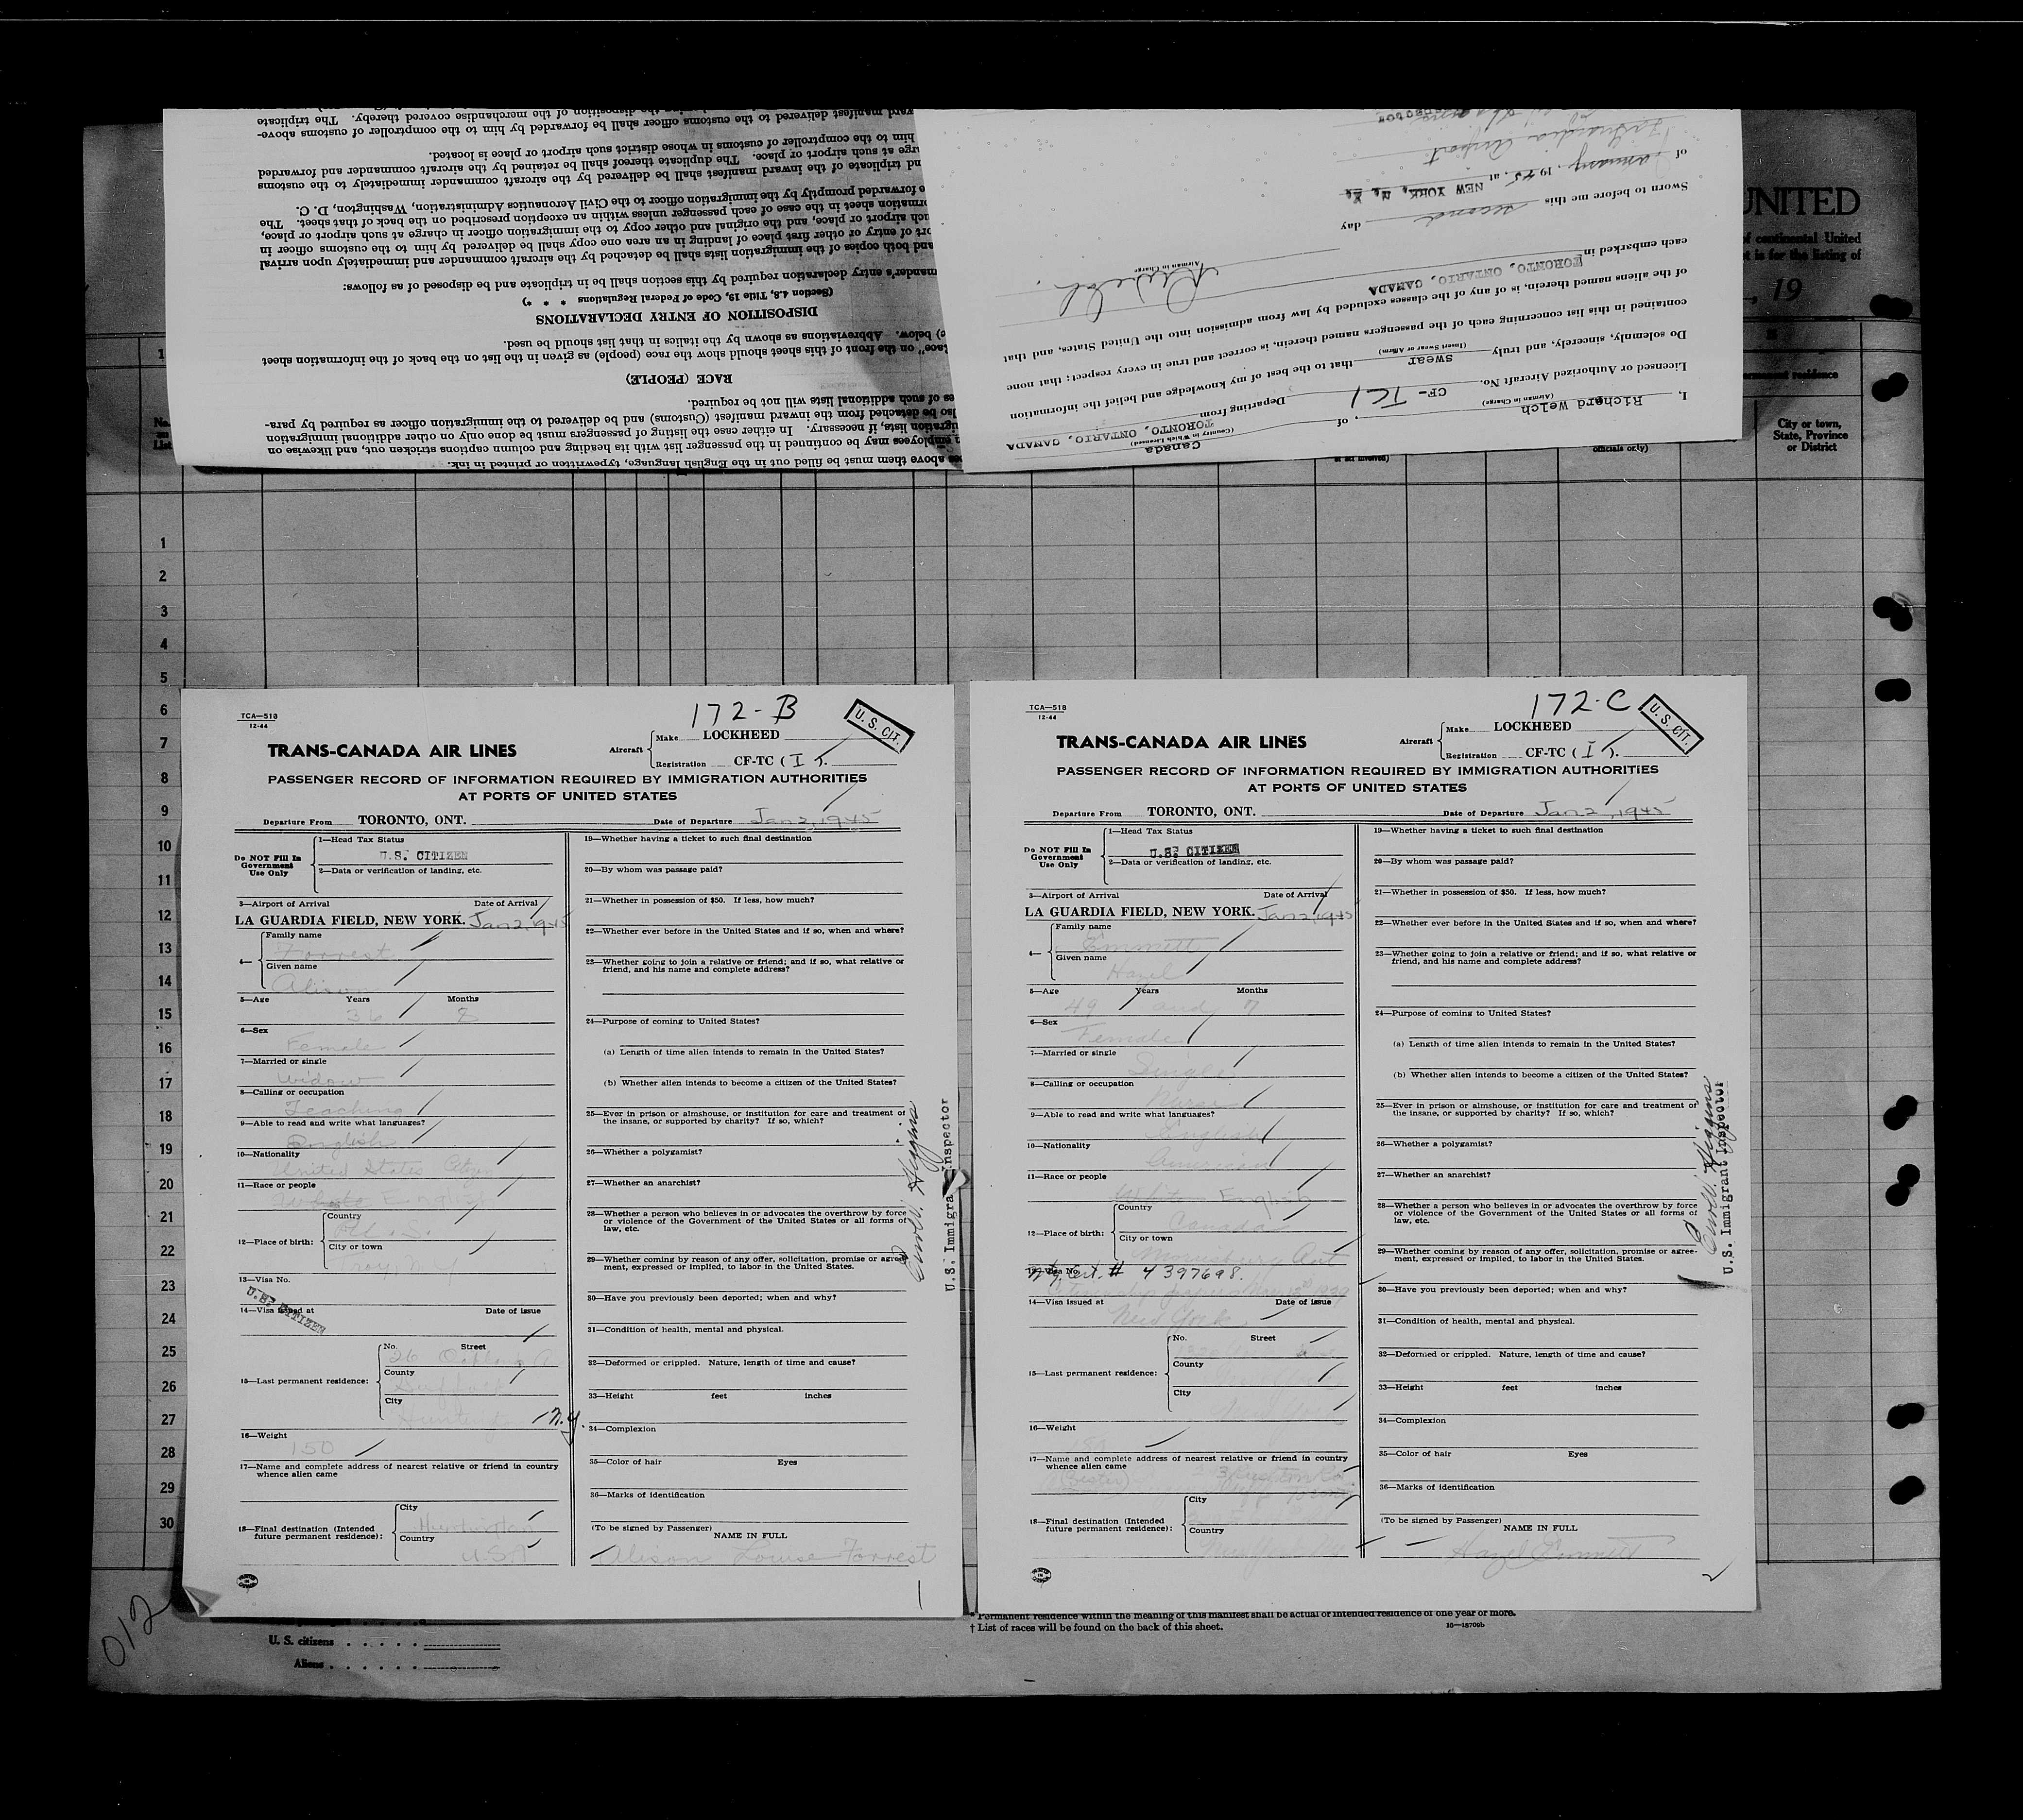 ward manifest delivered to the customs officer shall be forwarded by him to the comptroller of customs above-
him to the comptroller of customs in whose district such airport or place is located.
arge at such airport or place. The duplicate thereof shall be retained by the aircraft commander and forwarded
nd triplicate of the inward manifest shall be delivered by the aircraft commander immediately to the customs
e forwarded promptly by the immigration officer to the Civil Aeronautics Administration, Washington, D. C.
formation sheet in the case of each passenger unless within an exception prescribed on the back of that sheet. The
uch airport or place, and the original and other copy to the immigration officer in charge at such airport or place,
ort of entry or other first place of landing in an area one copy shall be delivered by him to the customs officer in
and both copies of the immigration lists shall be detached by the aircraft commander and immediately upon arrival
mander's entry declaration required by this section shall be in triplicate and be disposed of as follows:
(Section 4.8, Title 19, Code of Federal Regulations * * *)
DISPOSITION OF ENTRY DECLARATIONS
c) below. Abbreviations as shown by the italics in that list should be used.
ace" on the front of this sheet should show the race (people) as given in the list on the back of the information sheet
RACE (PEOPLE)
es of such additional lists will not be required.
lso be detached from the inward manifest (Customs) and be delivered to the immigration officer as required by para-
igration lists, if necessary. In either case the listing of passengers must be done only on other additional immigration
employees may be continued in the passenger list with its heading and column captions stricken out, and likewise on
es above them must be filled out in the English language, typewritten or printed in ink.
I, Richard Welch, of Canada
(Airman in Charge) (Country in Which Licensed)
Licensed or Authorized Aircraft No. CF-TCI Departing from TORONTO, ONTARIO, CANADA
Do solemnly, sincerely, and truly swear that to the best of my knowledge and belief the information
(Insert Swear or Affirm)
contained in this list concerning each of the passengers named therein, is correct and true in every respect; that none
of the aliens named therein, is of any of the classes excluded by law from admission into the United States, and that
each embarked in TORONTO, ONTARIO, CANADA
Airman in Charge
Sworn to before me this second day
of January, 1945, at NEW YORK, N. Y.
LaGuardia Airport
UNITED
of continental United
t is for the listing of
, 19
City or town,
State, Province
or District
officials only)
1
2
3
4
5
6
7
8
9
10
11
12
13
14
15
16
17
18
19
20
21
22
23
24
25
26
27
28
29
30
172-B
U. S. CIT.
TCA—518
12-44
TRANS-CANADA AIR LINES
Aircraft Make LOCKHEED
Registration CF-TC ( I ).
PASSENGER RECORD OF INFORMATION REQUIRED BY IMMIGRATION AUTHORITIES
AT PORTS OF UNITED STATES
Departure From TORONTO, ONT. Date of Departure Jan 2, 1945
Do NOT Fill In Government Use Only
1—Head Tax Status
U.S. CITIZEN
2—Data or verification of landing, etc.
3—Airport of Arrival Date of Arrival
LA GUARDIA FIELD, NEW YORK. Jan 2, 1945
4— Family name
Forrest
Given name
Alison
5—Age Years Months
36 8
6—Sex
Female
7—Married or single
Widow
8—Calling or occupation
Teaching
9—Able to read and write what languages?
English
10—Nationality
United States Citizen
11—Race or people
White English
12—Place of birth: Country
U.S.
City or town
Troy, N.Y.
13—Visa No.
U.S. CITIZEN
14—Visa issued at Date of issue
15—Last permanent residence: No. Street
26
County
Suffolk
City
Hunting N.Y.
16—Weight
150
17—Name and complete address of nearest relative or friend in country
whence alien came
18—Final destination (Intended
future permanent residence): City
Huntington
Country
U.S.A
19—Whether having a ticket to such final destination
20—By whom was passage paid?
21—Whether in possession of $50. If less, how much?
22—Whether ever before in the United States and if so, when and where?
23—Whether going to join a relative or friend; and if so, what relative or
friend, and his name and complete address?
24—Purpose of coming to United States?
(a) Length of time alien intends to remain in the United States?
(b) Whether alien intends to become a citizen of the United States?
25—Ever in prison or almshouse, or institution for care and treatment of
the insane, or supported by charity? If so, which?
26—Whether a polygamist?
27—Whether an anarchist?
28—Whether a person who believes in or advocates the overthrow by force
or violence of the Government of the United States or all forms of
law, etc.
29—Whether coming by reason of any offer, solicitation, promise or agree-
ment, expressed or implied, to labor in the United States.
30—Have you previously been deported; when and why?
31—Condition of health, mental and physical.
32—Deformed or crippled. Nature, length of time and cause?
33—Height feet inches
34—Complexion
35—Color of hair Eyes
36—Marks of identification
(To be signed by Passenger)
NAME IN FULL
Alison Louise Forrest
Higgins
U.S. Immigrant Inspector
1
172-C
U. S. CIT.
TCA—518
12-44
TRANS-CANADA AIR LINES
Aircraft Make LOCKHEED
Registration CF-TC ( I ).
PASSENGER RECORD OF INFORMATION REQUIRED BY IMMIGRATION AUTHORITIES
AT PORTS OF UNITED STATES
Departure From TORONTO, ONT. Date of Departure Jan 2, 1945
Do NOT Fill In Government Use Only
1—Head Tax Status
U.S. CITIZEN
2—Data or verification of landing, etc.
3—Airport of Arrival Date of Arrival
LA GUARDIA FIELD, NEW YORK. Jan 2, 1945
4— Family name
Emmett
Given name
Hazel
5—Age Years Months
49 and 7
6—Sex
Female
7—Married or single
Single
8—Calling or occupation
Nurse
9—Able to read and write what languages?
English
10—Nationality
American
11—Race or people
White English
12—Place of birth: Country
Canada
City or town
Morrisburg Ont
13—Visa No.
Cert. # 4397698.
14—Visa issued at Date of issue
New York
15—Last permanent residence: No. Street
County
City
16—Weight
17—Name and complete address of nearest relative or friend in country
whence alien came
(Sister)
18—Final destination (Intended
future permanent residence): City
Country
New York
19—Whether having a ticket to such final destination
20—By whom was passage paid?
21—Whether in possession of $50. If less, how much?
22—Whether ever before in the United States and if so, when and where?
23—Whether going to join a relative or friend; and if so, what relative or
friend, and his name and complete address?
24—Purpose of coming to United States?
(a) Length of time alien intends to remain in the United States?
(b) Whether alien intends to become a citizen of the United States?
25—Ever in prison or almshouse, or institution for care and treatment of
the insane, or supported by charity? If so, which?
26—Whether a polygamist?
27—Whether an anarchist?
28—Whether a person who believes in or advocates the overthrow by force
or violence of the Government of the United States or all forms of
law, etc.
29—Whether coming by reason of any offer, solicitation, promise or agree-
ment, expressed or implied, to labor in the United States.
30—Have you previously been deported; when and why?
31—Condition of health, mental and physical.
32—Deformed or crippled. Nature, length of time and cause?
33—Height feet inches
34—Complexion
35—Color of hair Eyes
36—Marks of identification
(To be signed by Passenger)
NAME IN FULL
Hazel Emmett
Higgins
U.S. Immigrant Inspector
2
012
U. S. citizens
Aliens
* Permanent residence within the meaning of this manifest shall be actual or intended residence of one year or more.
† List of races will be found on the back of this sheet.
16—18709b